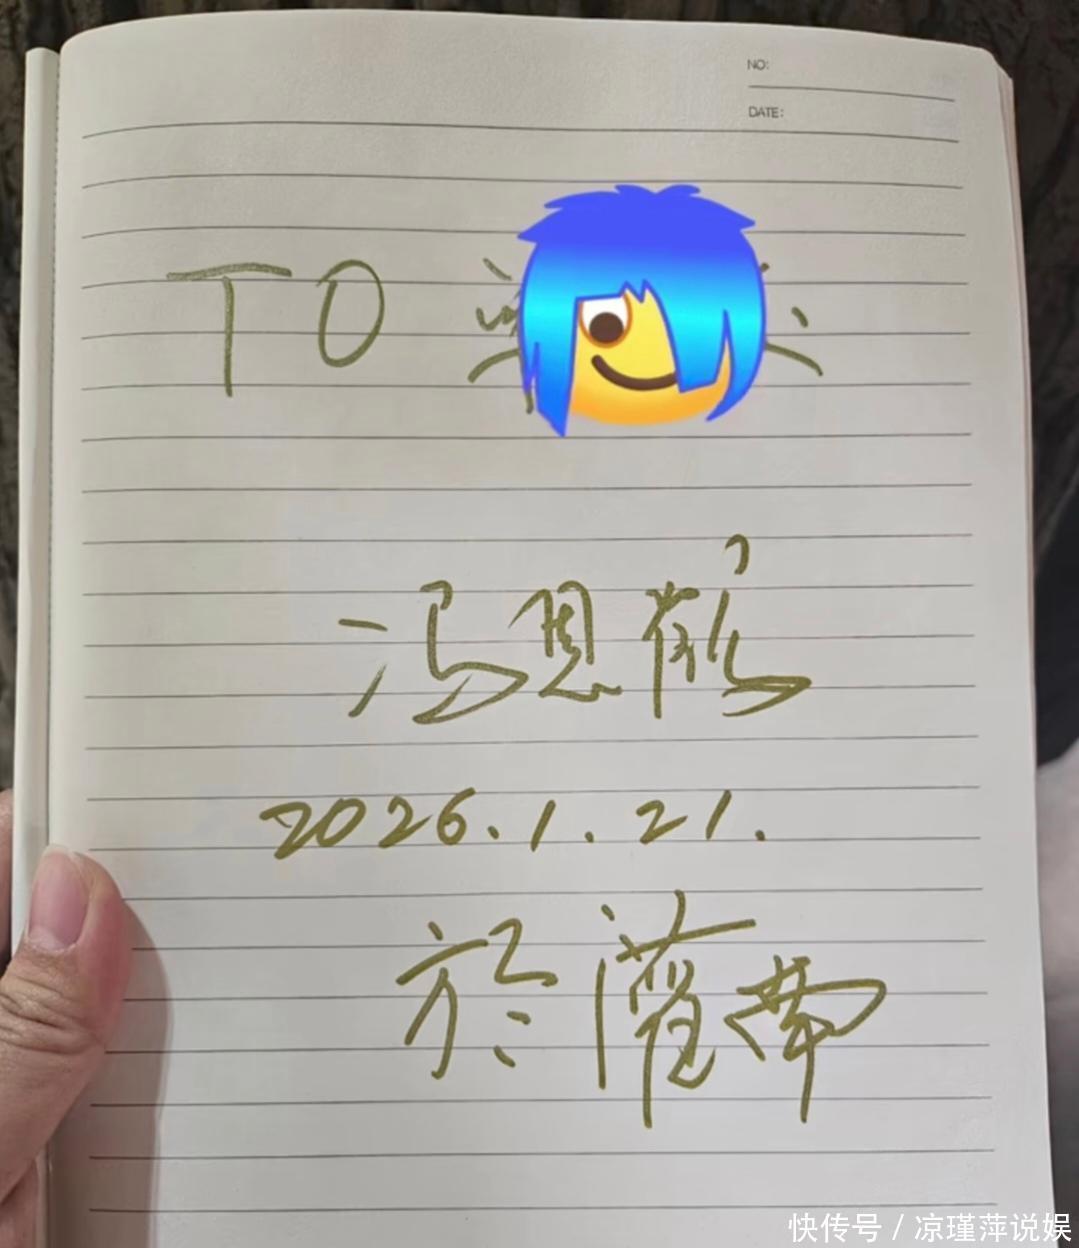 NO:
DATE:
TO
冯恩鹤
2026.1.21.
於
快传号 / 凉瑾萍说娱